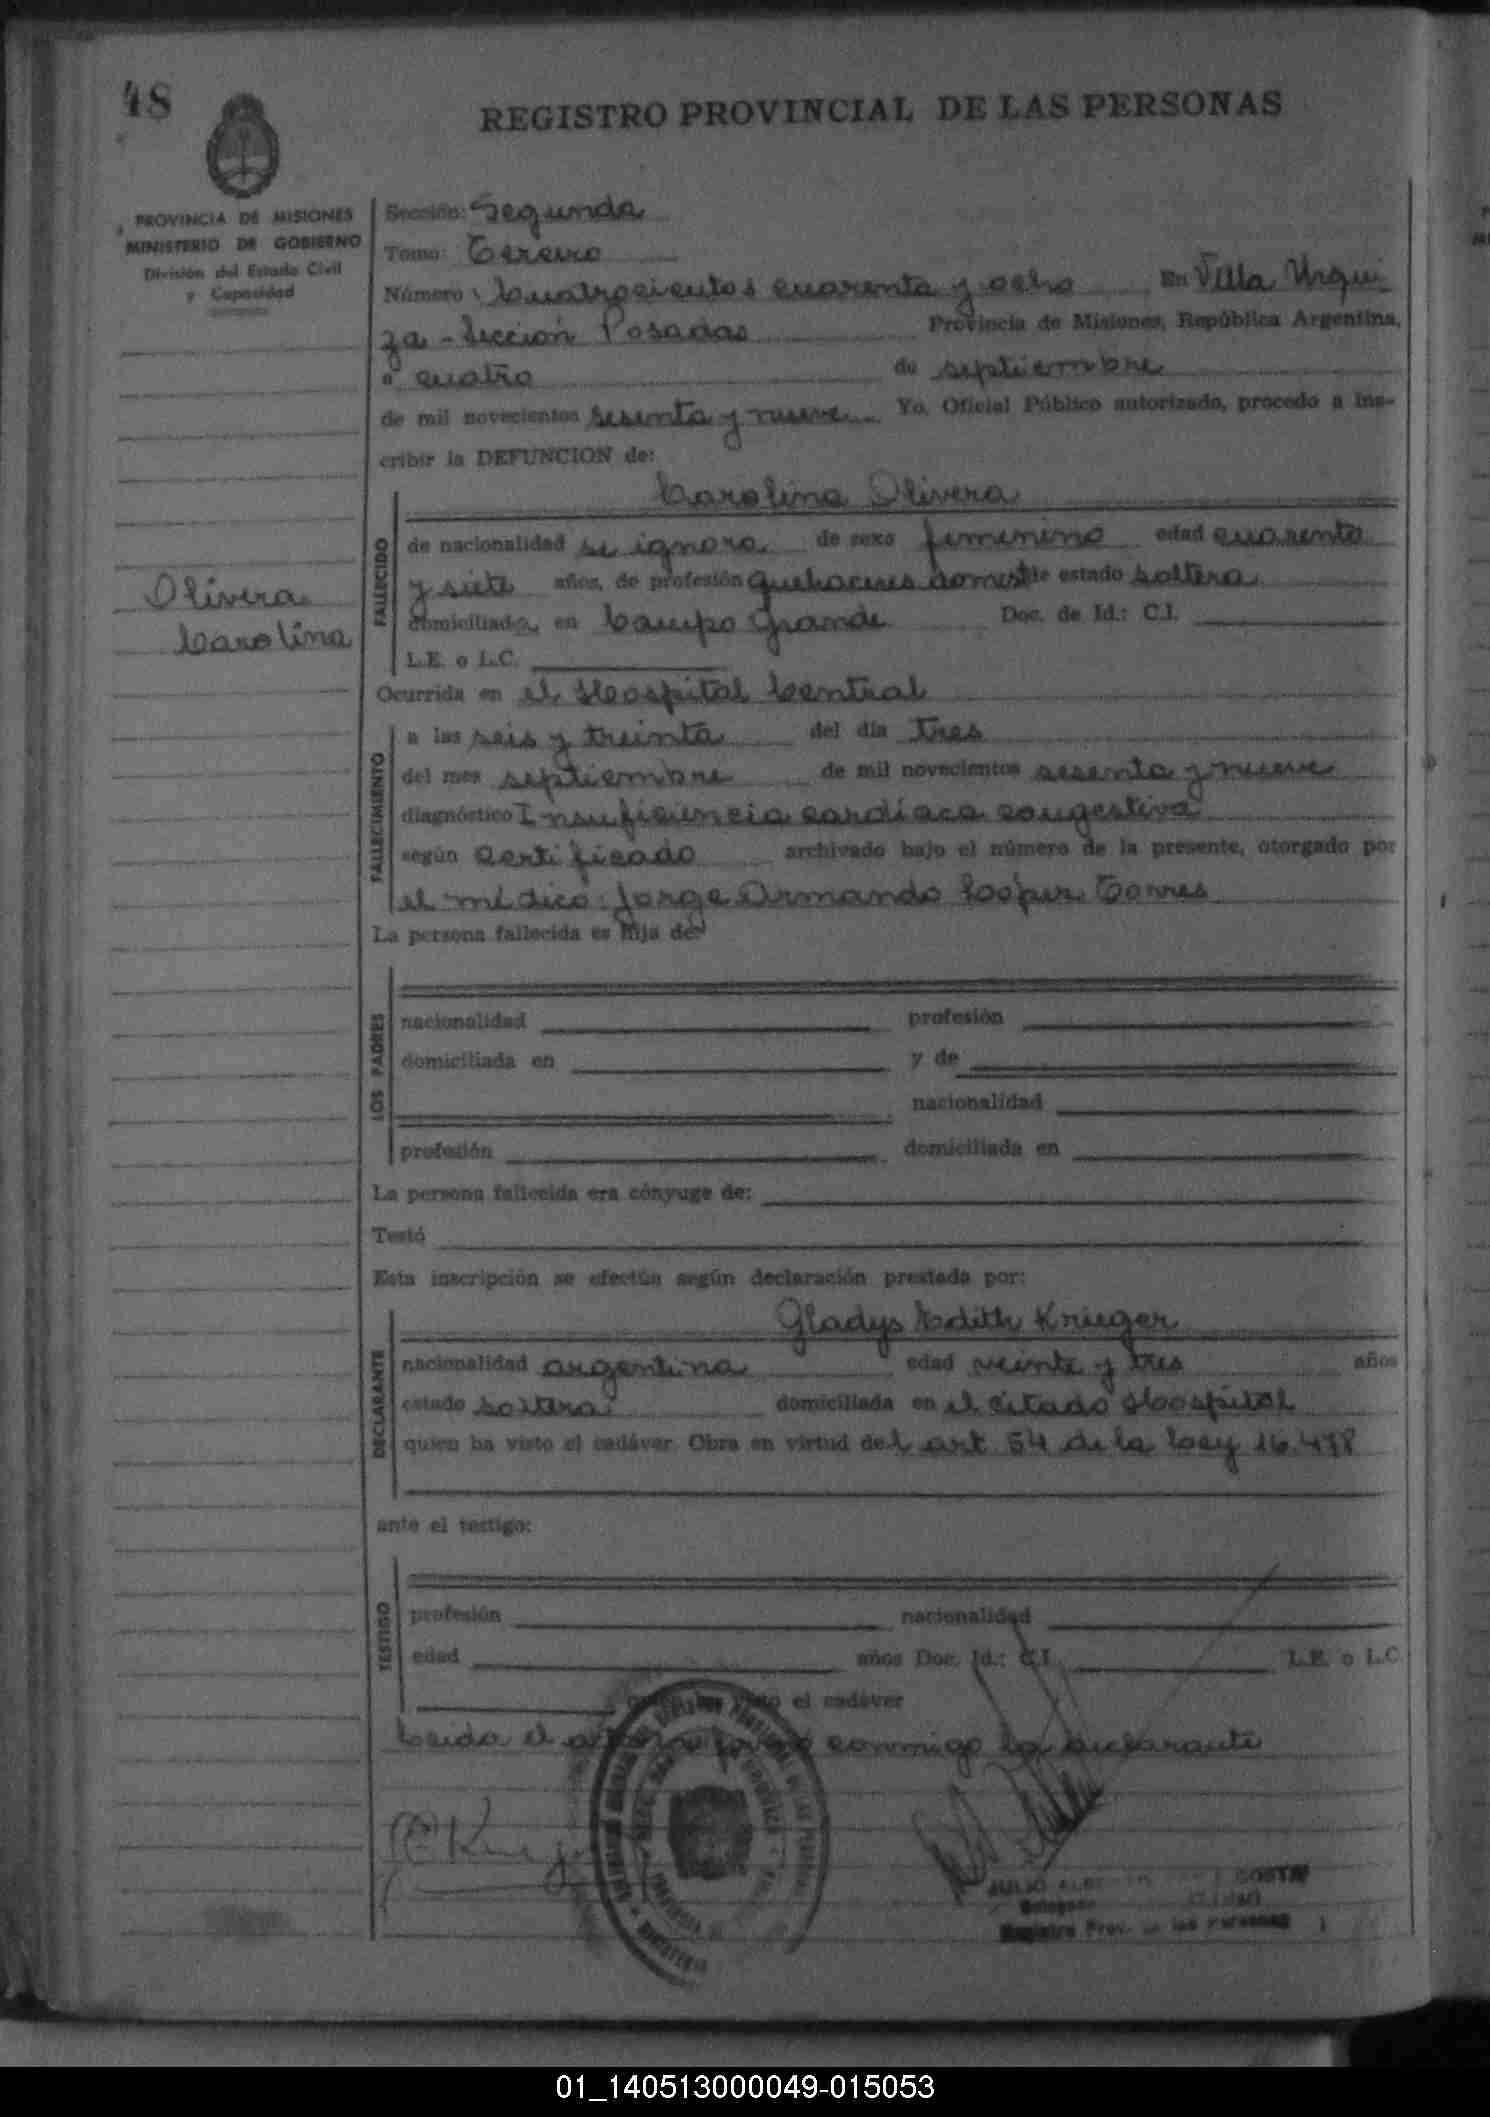 48
REGISTRO PROVINCIAL DE LAS PERSONAS
PROVINCIA DE MISIONES
MINISTERIO DE GOBIERNO
División del Estado Civil
y Capacidad
Sección: Segunda
Tomo: Tercero
Número: Cuatrocientos cuarenta y ocho En Villa Urqui
za - Sección Posadas Provincia de Misiones, República Argentina,
a cuatro de septiembre
de mil novecientos sesenta y nueve Yo, Oficial Público autorizado, procedo a ins-
cribir la DEFUNCION de:
Carolina Olivera
FALLECIDO
de nacionalidad se ignora de sexo femenino edad cuarenta
y siete años, de profesión quehaceres domest de estado soltera
domiciliada en Campo Grande Doc. de Id.: C.I.
L.E. o L.C.
Olivera
Carolina
Ocurrida en el Hospital Central
FALLECIMIENTO
a las seis y treinta del día tres
del mes septiembre de mil novecientos sesenta y nueve
diagnóstico Insuficiencia cardíaca congestiva
según certificado archivado bajo el número de la presente, otorgado por
el médico: Jorge Armando López Torres
La persona fallecida es hija de:
LOS PADRES
nacionalidad profesión
domiciliada en y de
nacionalidad
profesión domiciliada en
La persona fallecida era cónyuge de:
Testó
Esta inscripción se efectúa según declaración prestada por:
Gladys Edith Krieger
DECLARANTE
nacionalidad argentina edad veinte y tres años
estado soltera domiciliada en el citado Hospital
quien ha visto el cadáver. Obra en virtud del art. 54 de la Ley 16.478
ante el testigo:
TESTIGO
profesión nacionalidad
edad años Doc. Id.: C.I. L.E. o L.C.
el cadáver
Leida el conmigo la declarante
JULIO
Registro Prov. de las Personas
01_140513000049-015053